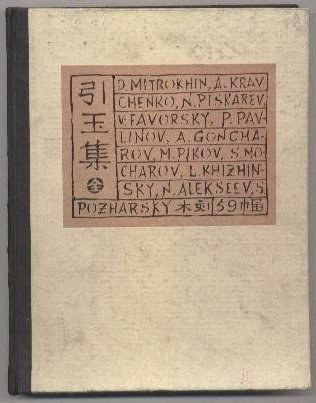 引玉集
全
D. MITROKHIN, A. KRAV
CHENKO, N. PISKAREV,
V. FAVORSKY, P. PAV-
LINOV, A. GONCHA-
ROV, M. PIKOV, S. MO-
CHAROV, L. KHIZHIN-
SKY, N. ALEKSEEV, S.
POZHARSKY 木刻 59 幅